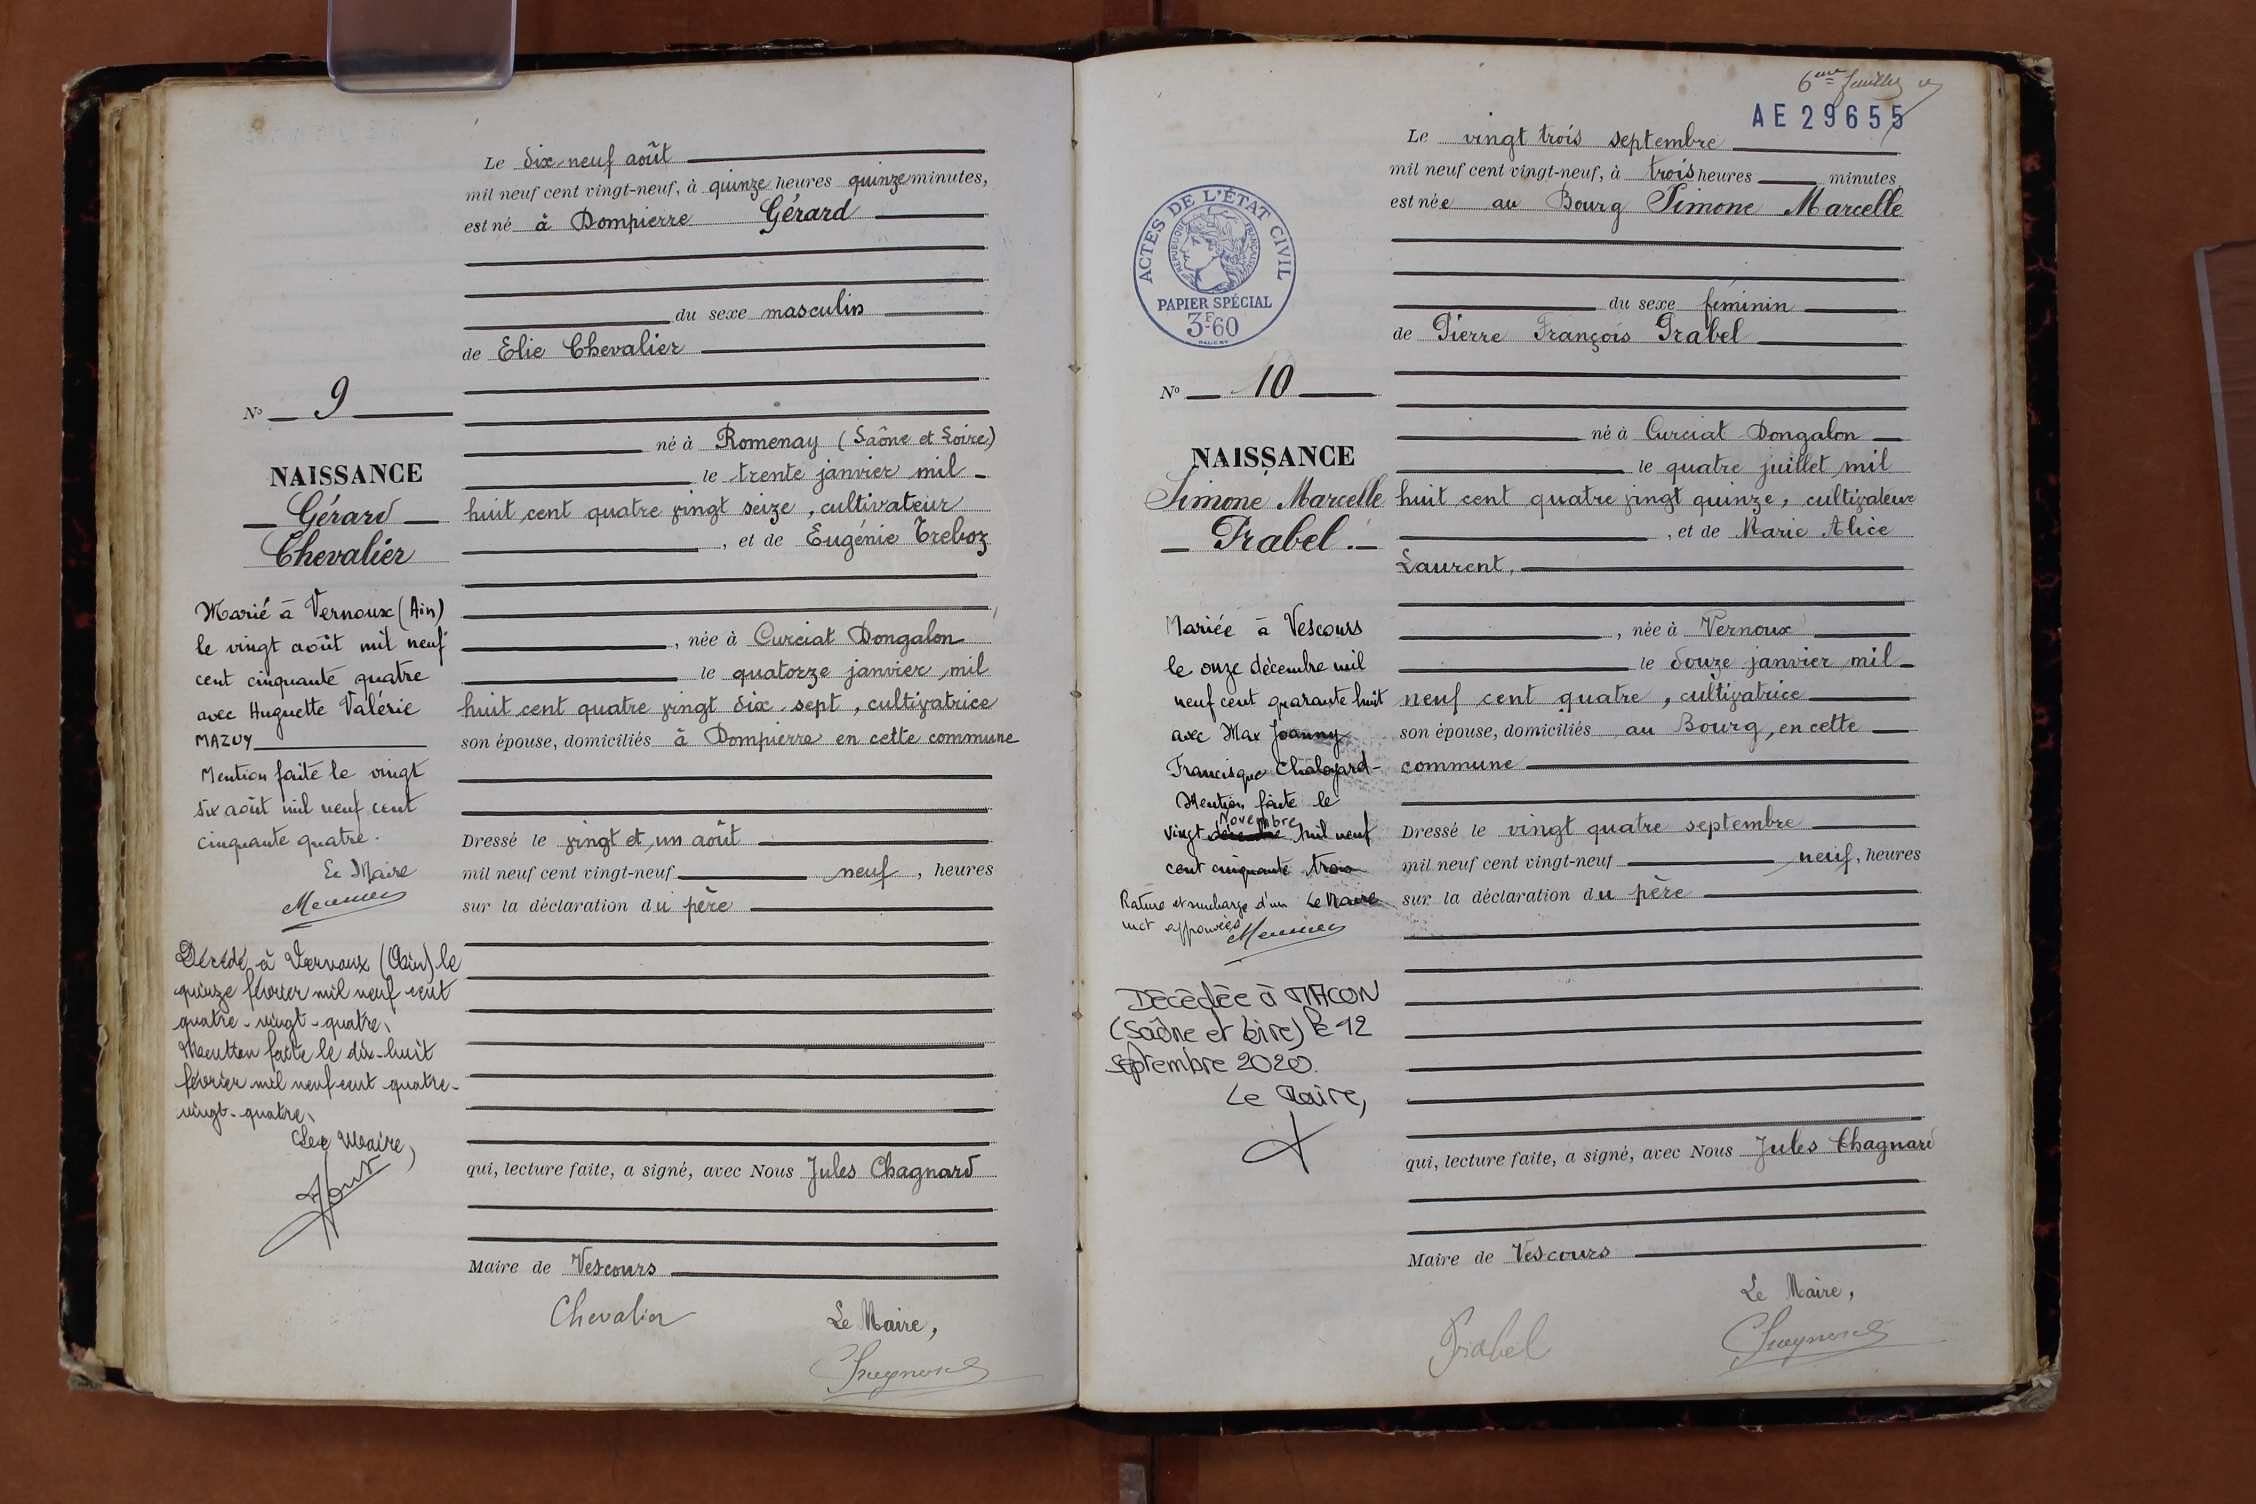 Le dix-neuf août
mil neuf cent vingt-neuf, à quinze heures quinze minutes,
est né à Dompierre Gérard
du sexe masculin
de Elie Chevalier
né à Romenay (Saône et Loire)
le trente janvier mil
huit cent quatre vingt seize, cultivateur
, et de Eugénie Treboz
, née à Curciat Dongalon
le quatorze janvier mil
huit cent quatre vingt dix-sept, cultivatrice
son épouse, domiciliés à Dompierre en cette commune
Dressé le vingt et un août
mil neuf cent vingt-neuf neuf, heures
sur la déclaration du père
qui, lecture faite, a signé, avec Nous Jules Chagnard
Maire de Vescours
Chevalier
Le Maire,
N° 9
NAISSANCE
Gérard
Chevalier
Marié à Vernoux (Ain)
le vingt août mil neuf
cent cinquante quatre
avec Huguette Valérie
MAZUY
Mention faite le vingt
six août mil neuf cent
cinquante quatre.
Le Maire
Meunier
Décédé à Vernoux (Ain) le
quinze février mil neuf cent
quatre-vingt-quatre,
Mention faite le dix-huit
février mil neuf cent quatre-
vingt-quatre,
Le Maire,
6ème feuillet
AE 29655
ACTES DE L'ÉTAT CIVIL
RÉPUBLIQUE FRANÇAISE
PAPIER SPÉCIAL
3F60
Le vingt trois septembre
mil neuf cent vingt-neuf, à trois heures minutes
est née au Bourg Simone Marcelle
du sexe féminin
de Pierre François Prabel
né à Curciat Dongalon
le quatre juillet mil
huit cent quatre vingt quinze, cultivateur
, et de Marie Alice
Laurent,
, née à Vernoux
le douze janvier mil
neuf cent quatre, cultivatrice
son épouse, domiciliés au Bourg, en cette
commune
Dressé le vingt quatre septembre
mil neuf cent vingt-neuf neuf, heures
sur la déclaration du père
qui, lecture faite, a signé, avec Nous Jules Chagnard
Maire de Vescours
Le Maire,
Prabel
N° 10
NAISSANCE
Simone Marcelle
Prabel.
Mariée à Vescours
le onze décembre mil
neuf cent quarante huit
avec Max Joanny
Francisque Chaloyard
Mention faite le
Novembre
vingt mil neuf
cent cinquante trois
Rature et surcharge d'un Le Maire
mot approuvées
Meunier
Décédée à MACON
(Saône et Loire) le 12
septembre 2020.
Le Maire,